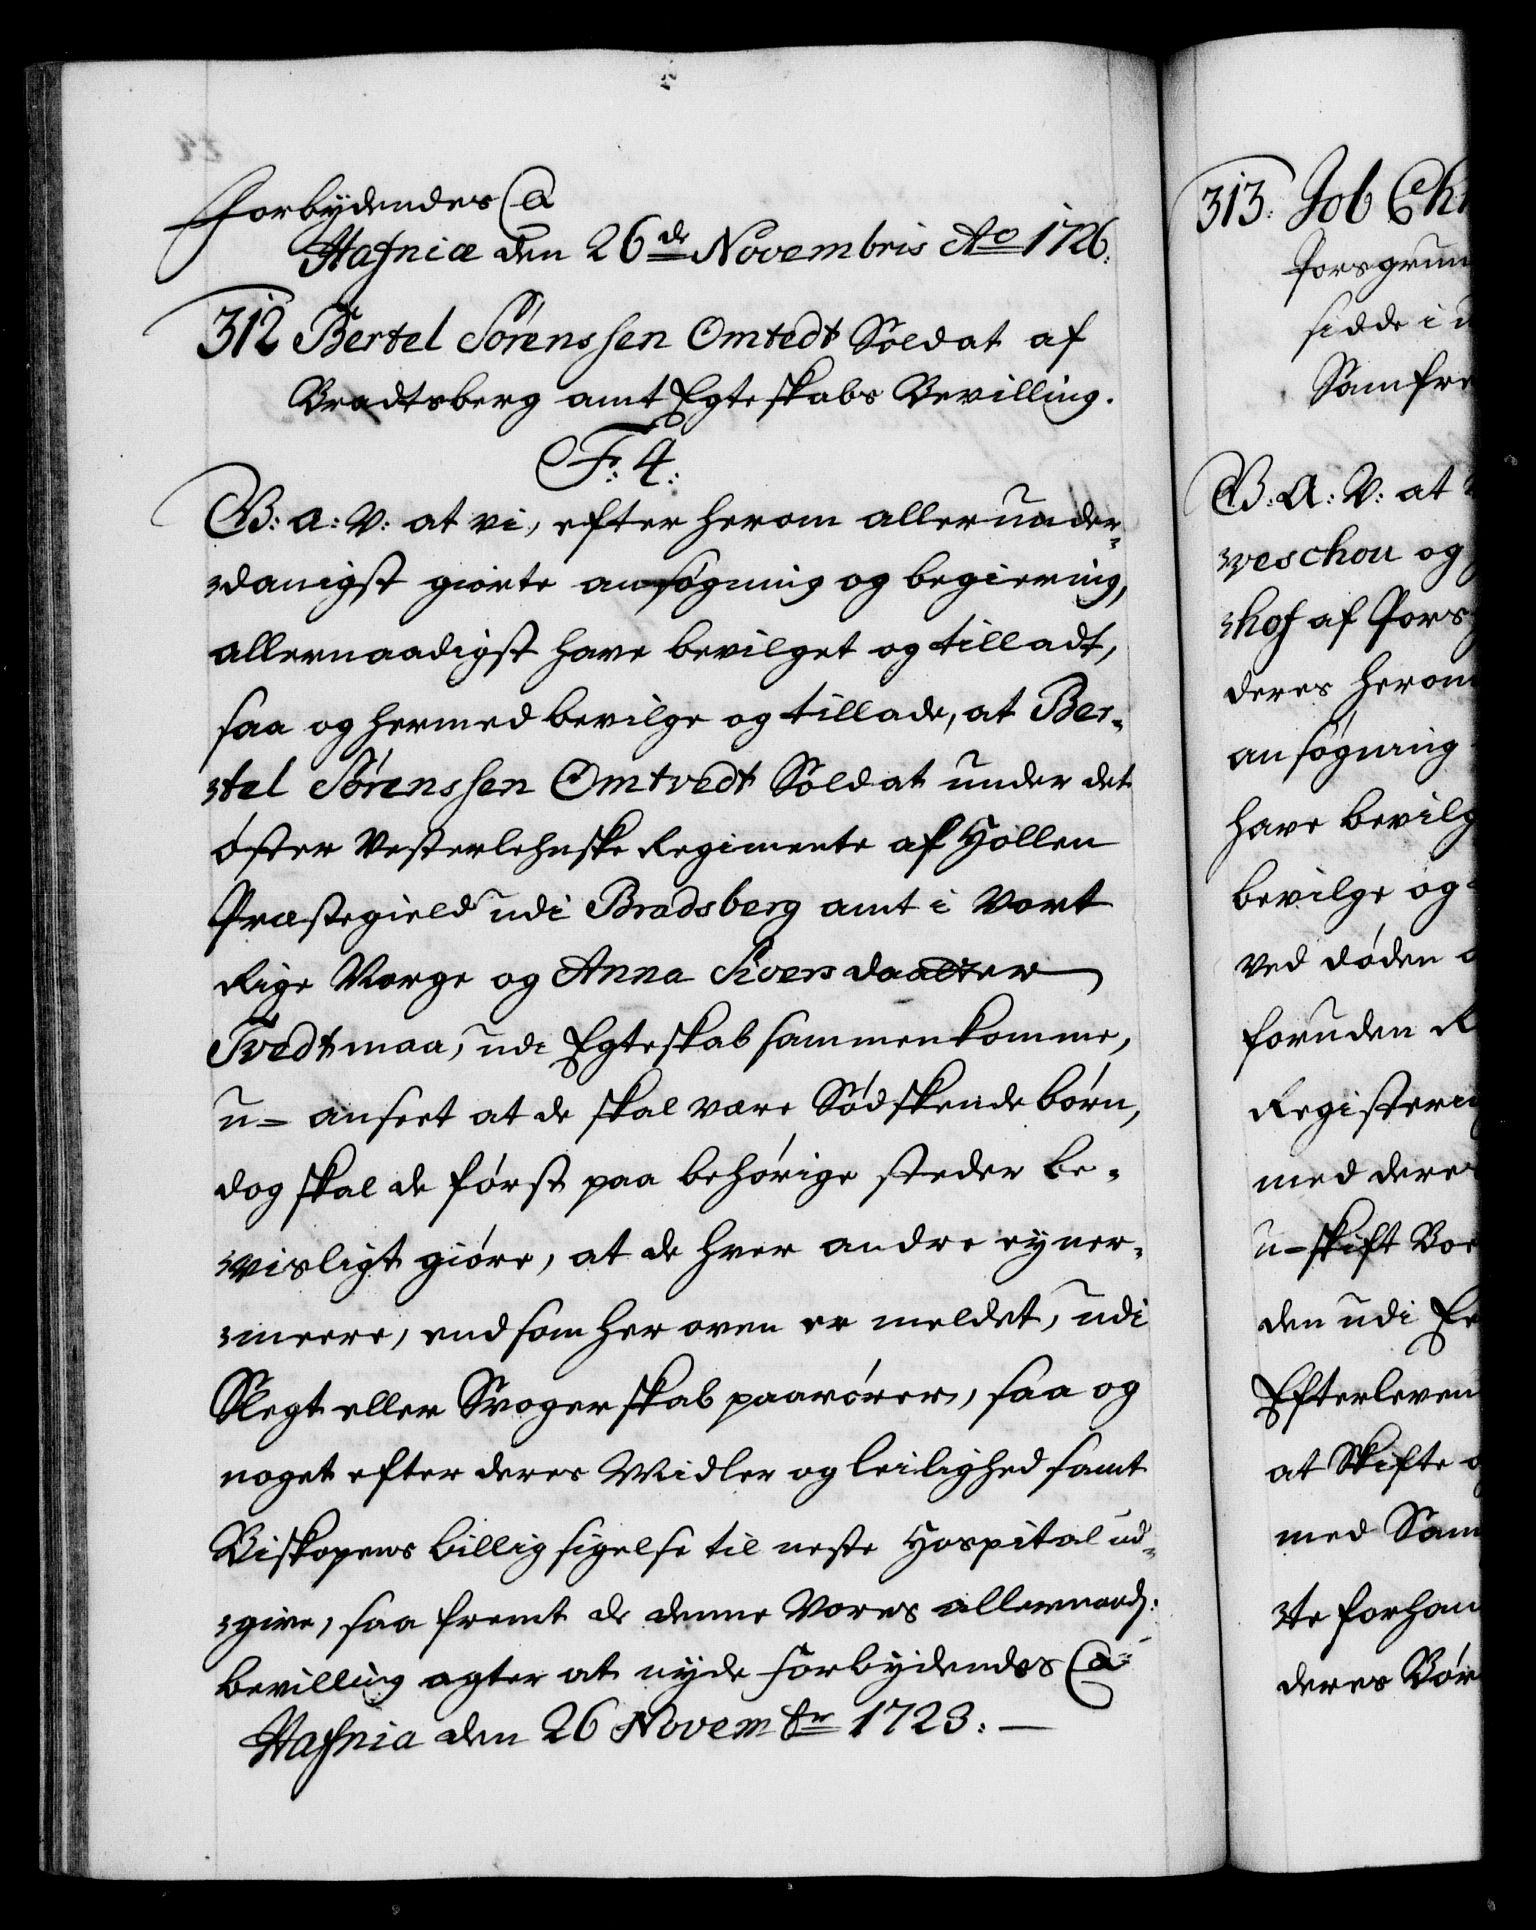 Forbydendes &
Hafniæ den 26de Novembris Ao 1726.
312 Bertel Sørenssen Omtedt Soldat af
Bradtsberg amt Egteskabs Bevilling.
F: 4:
G: a: V: at vi, efter herom allerunder-
danigst giorte ansøgning og begiering,
allernaadigst have bevilget og tilladt,
saa og hermed bevilge og tillade, at Ber-
tel Sørenssen Omtvedt Soldat under det
øster Vesterlehnske Regimente af Hollen
Præstegield udi Bradsberg amt i Vort
Rige Norge og Anna Siversdaatter
Tvedt maa, udi Egteskab sammenkomme,
u-anseet at de skal være Sødskendebørn,
dog skal de først paa behørige steder be-
visligt giøre, at de hver andre ey nær-
meere, end som her oven er meldet, udi
Slegt eller Svogerskab paarører, saa og
noget efter deres Midler og leilighed samt
Biskopens billigsigelse til neste Hospital ud-
give, saa fremt de denne Vores allernaad:
bevilling agter at nyde Forbydendes &
Hafnia den 26 Novembr 1723.
313. Job Ch
Porsgrun
sidde i u
Samfre
G: A: V: at
weschou og
hof af Pors
deres herom
ansøgning
have bevilg
bevilge og
ved døden
foruden R
Registeri
med deres
u-skift Boe
den udi
Efterleven
at Skifte
med Sam
te forhan
deres Bør